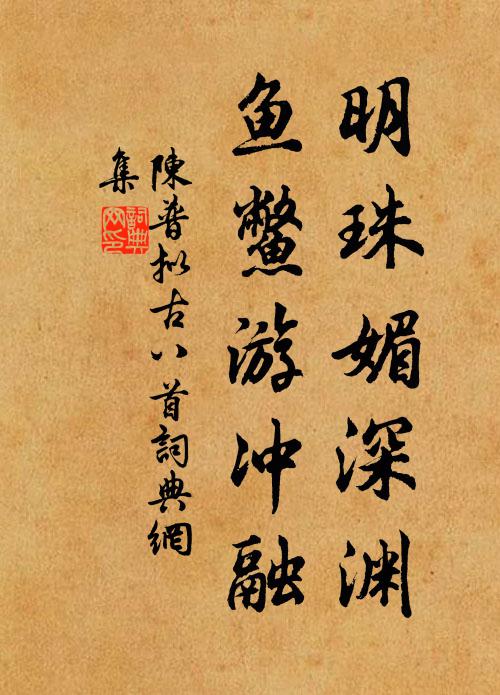 明珠媚深渊
鱼鳖游冲融
陳普拟古八首詞典網
集
詞典网印